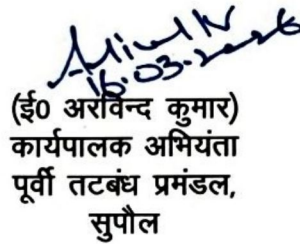 16.03.2026
(ई0 अरविन्द कुमार)
कार्यपालक अभियंता
पूर्वी तटबंध प्रमंडल,
सुपौल